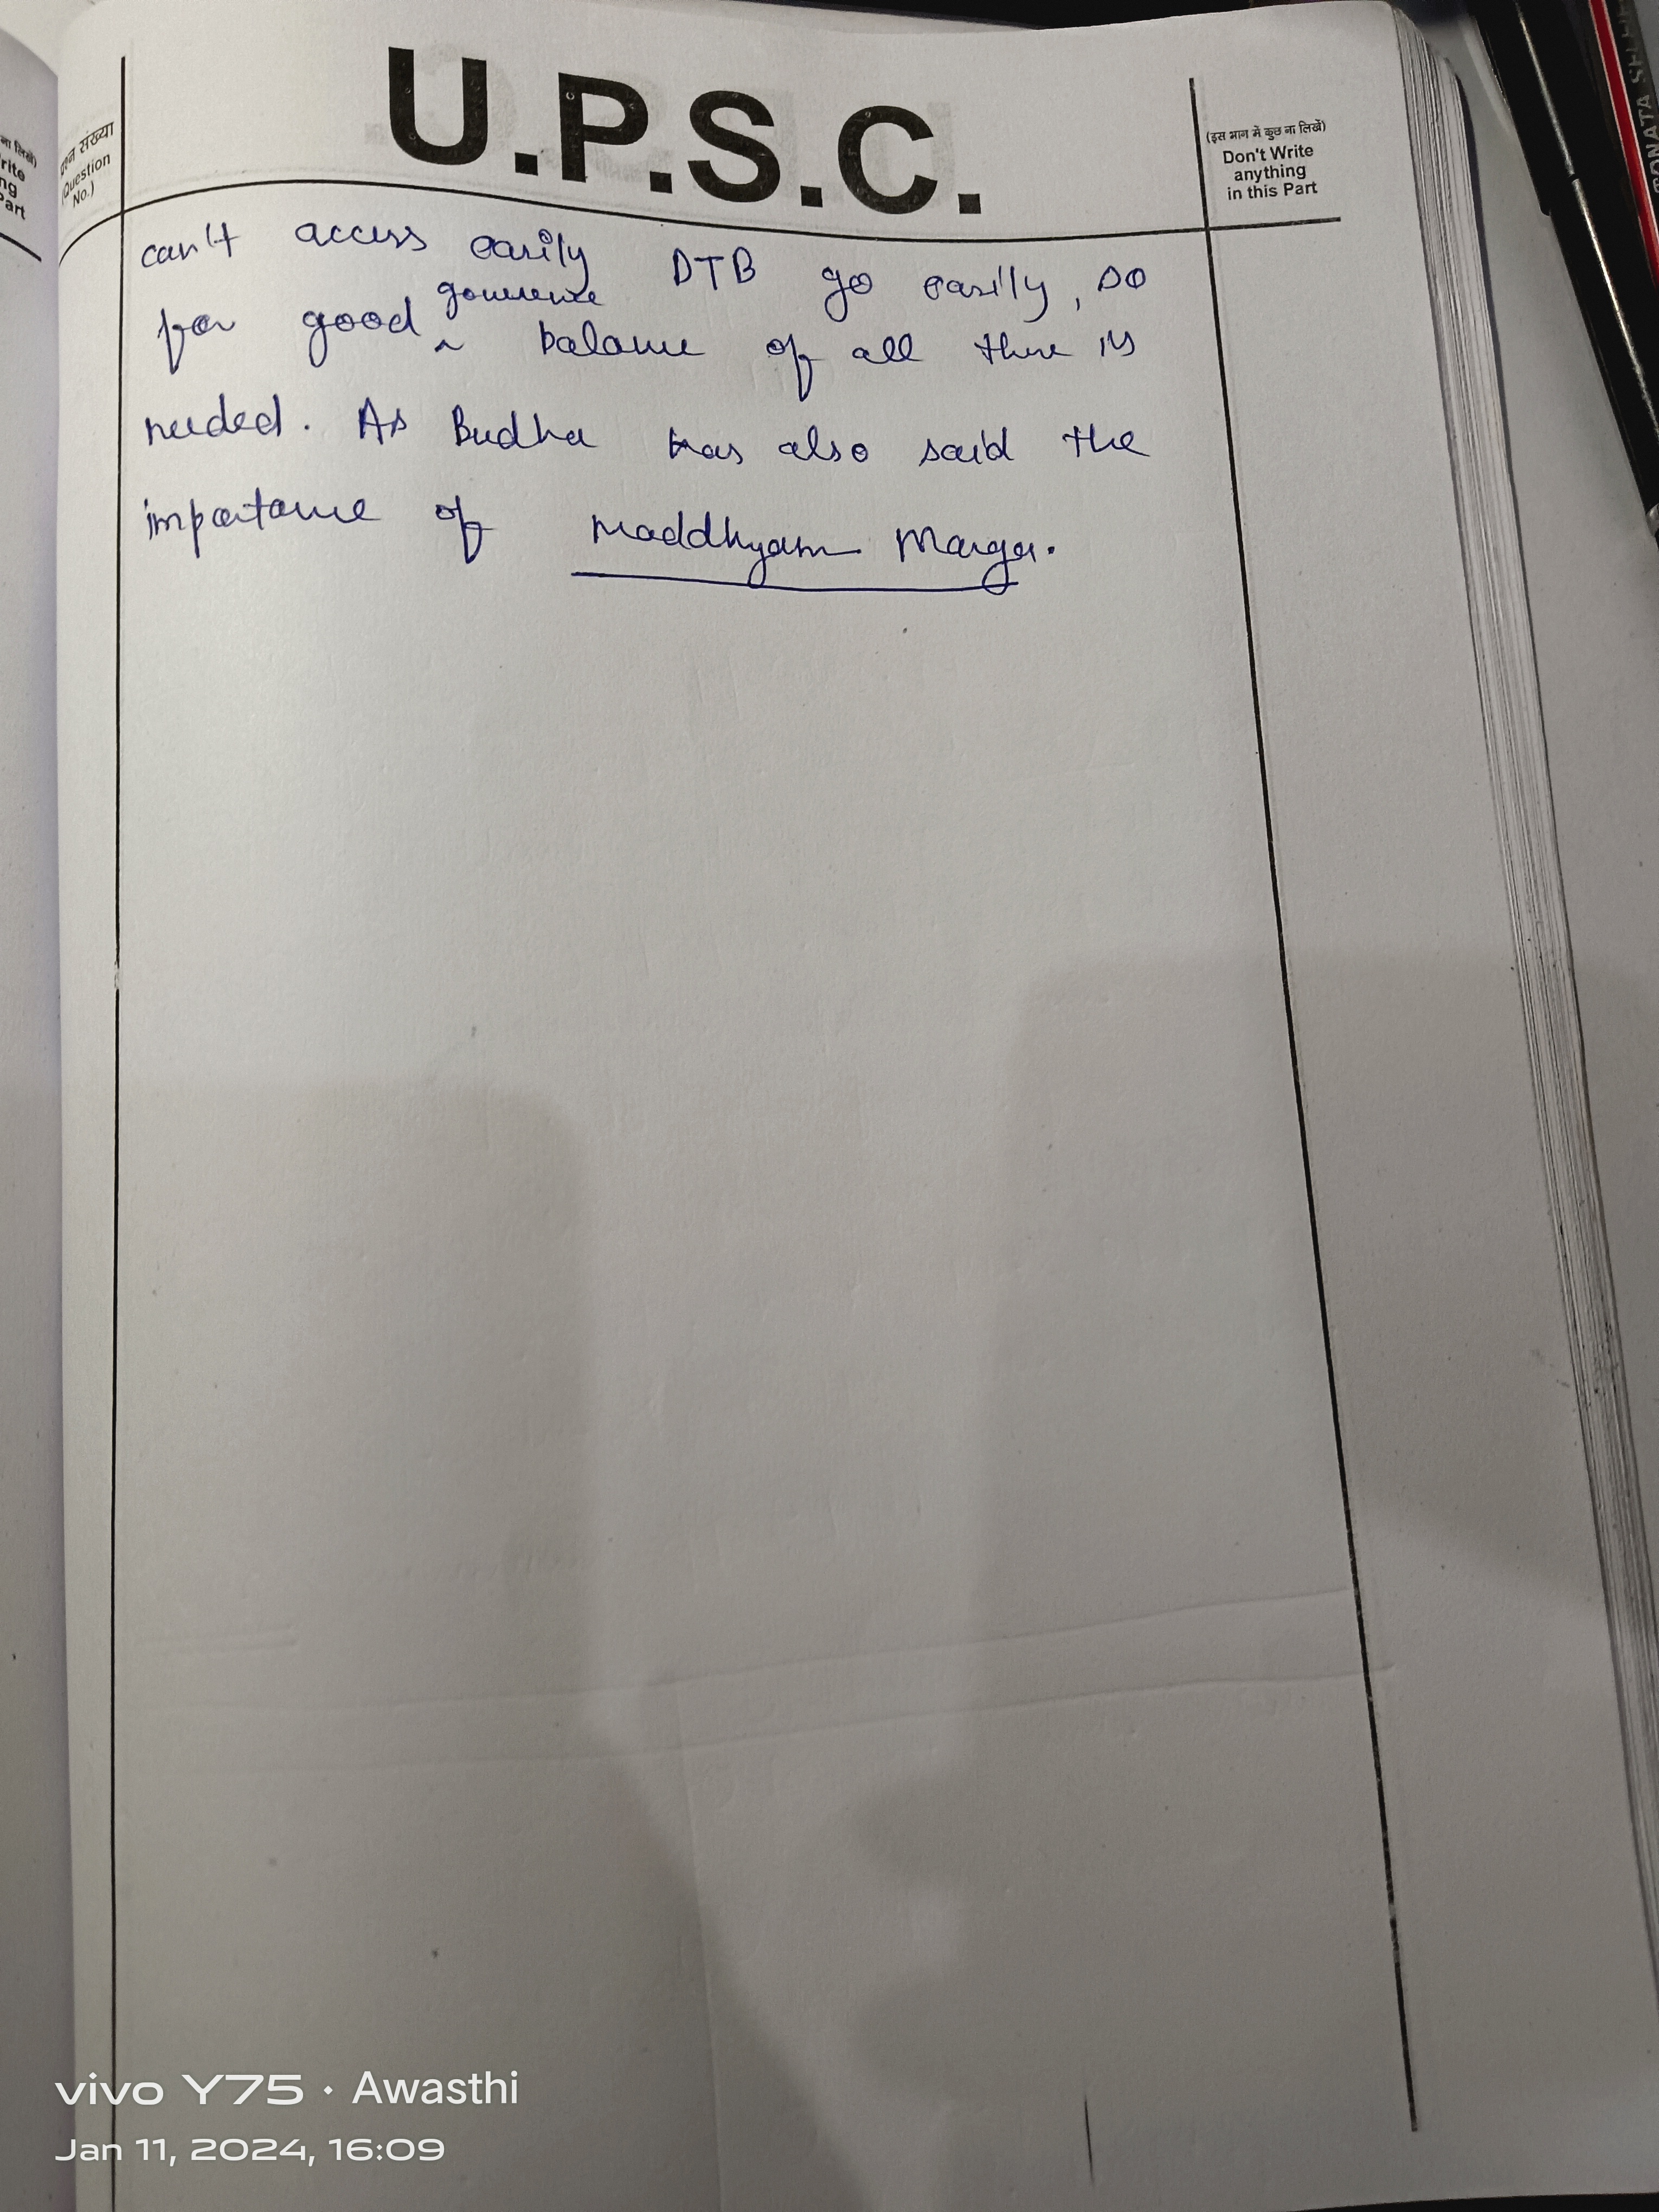 U.P.S.C.
प्रश्न संख्या
(Question
No.)
(इस भाग में कुछ ना लिखें)
Don't Write
anything
in this Part
can't access easily DTB go easily, so
for good governance balance of all there is
needed. As Budha has also said the
importance of Maddhyam Marga.
vivo Y75 · Awasthi
Jan 11, 2024, 16:09